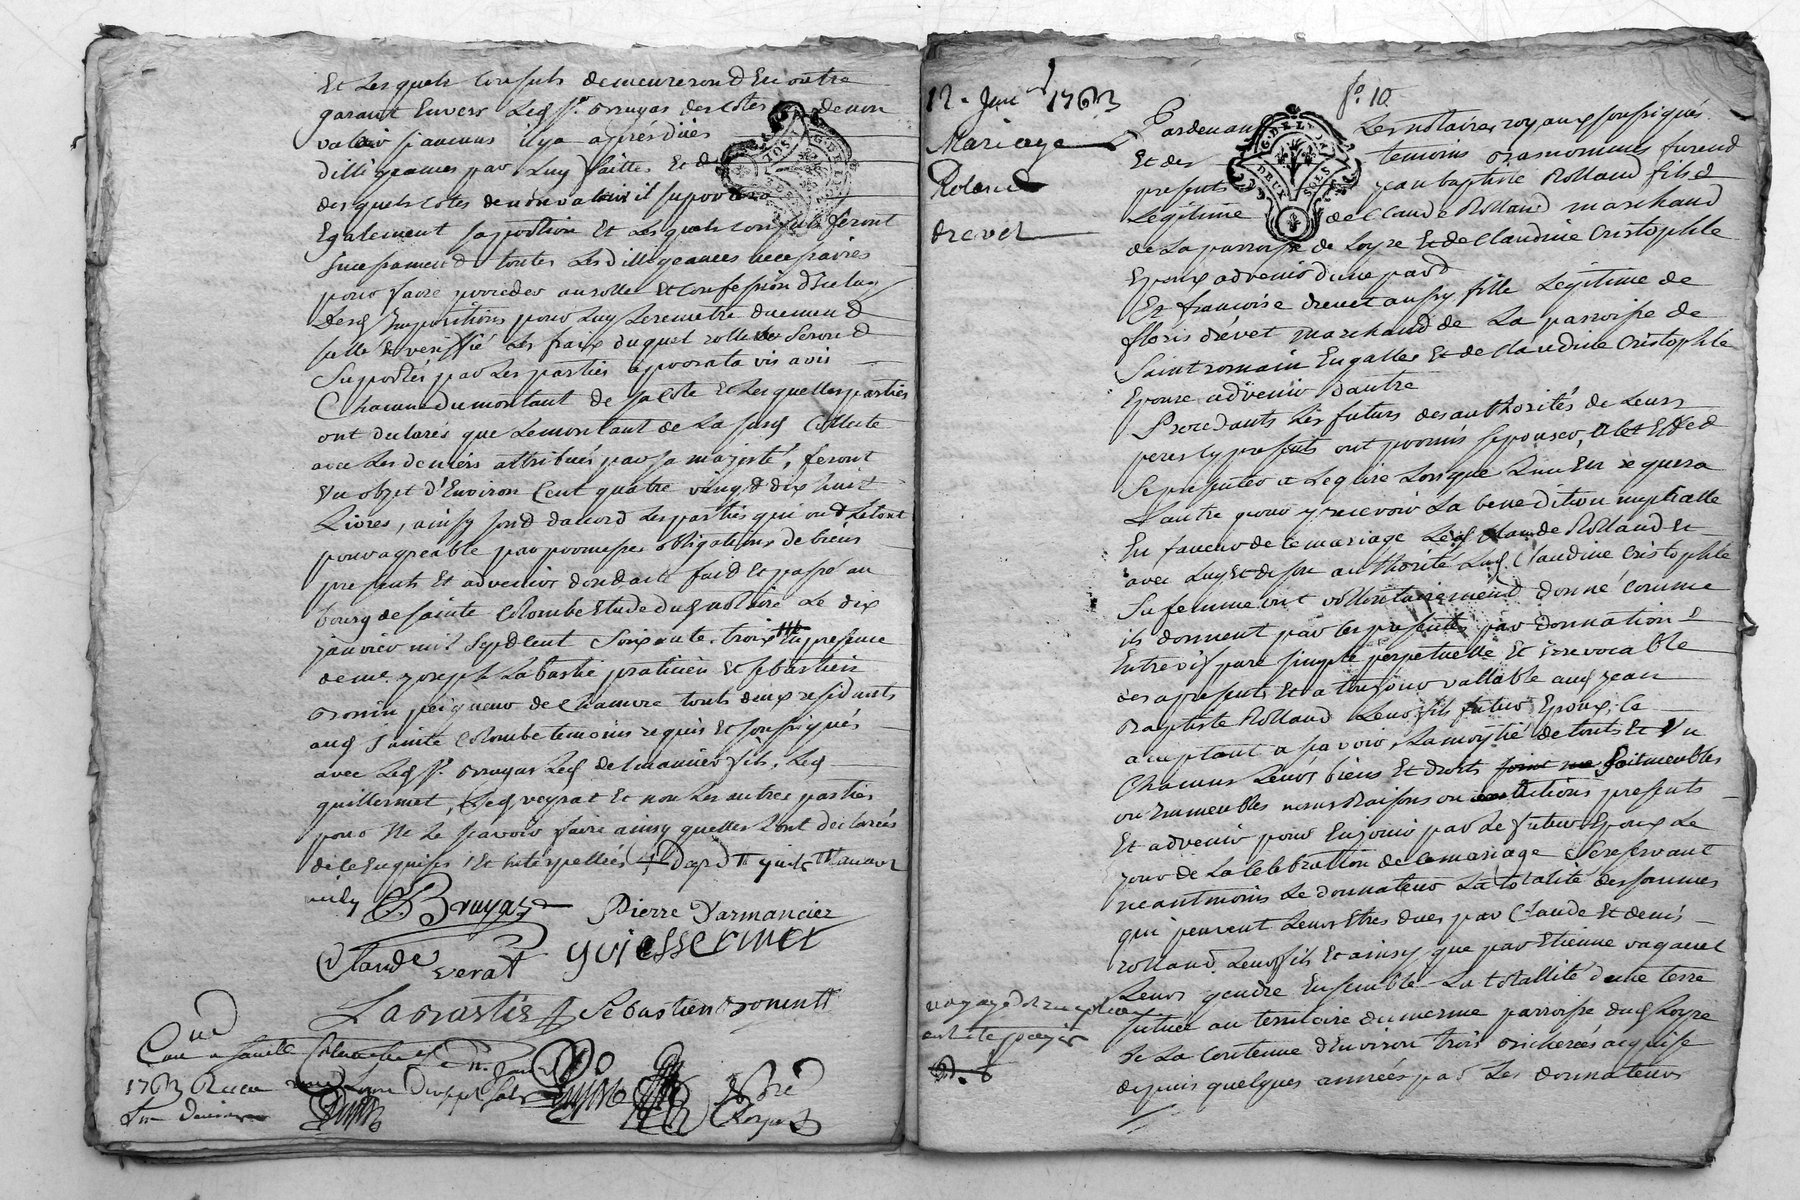 Et Lesquels Consuls demeureront En outre
garant Envers Led Sr. Bruyas des Cotes de non
valeur si aucuns il y a après dües
dilligeances par Luy faittes Et de
des quels Cotes de non valeur il suportera
Egalement sa portion Et Lesquels Consuls feront
Incessament toutes Les dilligeances necessaires
pour faire proceder au rolle Et Confession d'Iceluy
Desd Impositions pour Luy Le remettre duement
Les frais duquel rolle Seront
Suportés par Les parties a prorata vis avis
Chacune du montant de sa Cote Et Lesquelles parties
ont declarés que Le montant de La susd Collecte
avec Les deniers attribués par sa majesté, feront
Un objet d'Environ Cent quatre vingt dix huit
Livres, ainsy sont daccord Les parties qui ont Le tout
pour agreable par promesses obligations de biens
presents Et advenir dont acte fait Et passé au
bourg de Sainte Colombe Etude dud notaire Le dix
janvier mil Sept Cent Soixante trois En presence
de me. joseph Labastie praticien Et sebastien
Bronin peigneur de Chanvre touts deux residants
aud Sainte Colombe temoins requis Et soussignés
avec Led Sr. Bruyas Led fils, Led
guillermet, Led veyrat Et non Les autres parties
pour Ne Le scavoir faire ainsy quelles L'ont declarées
de ce Enquises Et Interpellées
Bruyas Pierre Varmancier
Claude verat guiessermet
Labastie Sebastien Bronin
1763 Recu
12. Janv 1763
Mariage
Roland
drevet
fo. 10
Pardevant Les notaires royaux soussignés
Et des temoins Bas nommés furent
G. DE LYON
DEUX SOLS
presents jean baptiste Rolland fils
Legitime de Claude Rolland marchand
de La parroisse de Loyre Et de Claudine Cristophle
Epoux advenir d'une part
Et francoise drevet aussy fille Legitime de
floris drevet marchand de La parroisse de
Saint romain En galles Et de Claudine Cristophle
Epouse advenir dautre
Procedants Les futurs des authorités de Leurs
peres Cy presents ont promis s'epouser, a Cet Effet
Se presenter a Leglise Lorsque L'un En requera
L'autre pour y recevoir La benediction nuptialle
En faveur de Ce mariage Led Claude Rolland Et
avec Luy Et de son authorité Lad. Claudine Cristophle
Sa femme ont vollontairement donné Comme
ils donnent par Ces presentes par donnation
Entre vif pure simple perpetuelle Et irrevocable
des a presents Et a toujours vallable aud jean
Baptiste Rolland Leur fils futur Epoux, Ce
acceptant a sçavoir La moytié de touts Et Un
Chacuns Leurs biens Et droits soit meubles
ou Immeubles noms Raisons ou actions presents
Et advenir pour En jouir par Le futur Epoux Le
jour de La Celebration de Ce mariage Se reservant
neantmoins Le donnateur La totalité des sommes
qui peuvent Leurs Etres dues par Claude Et denis
rolland Leurs fils Et ainsy que par Etienne vaganet
Leurs gendre Ensemble La totallité d'une terre
située au territoire du meme parroisse dud Loyre
de La Contenue d'Environ trois bicherées acquise
depuis quelques années par Les donnateurs